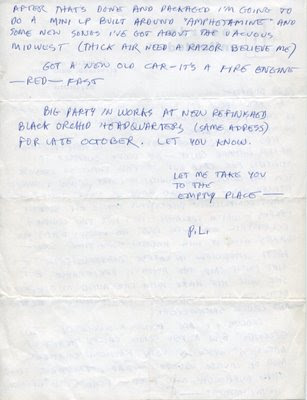 AFTER THATS DONE AND PACKAGED I'M GOING TO
DO A MINI LP BUILT AROUND "AMPHETAMINE" AND
SOME NEW SONGS I'VE GOT ABOUT THE VACUOUS
MIDWEST (THICK AIR NEED A RAZOR BELIEVE ME)
GOT A NEW OLD CAR—IT'S A FIRE ENGINE
—RED—FAST
BIG PARTY IN WORKS AT NEW REFINISHED
BLACK ORCHID HEADQUARTERS (SAME ADRESS)
FOR LATE OCTOBER. LET YOU KNOW.
LET ME TAKE YOU
TO THE
EMPTY PLACE—
P.L.